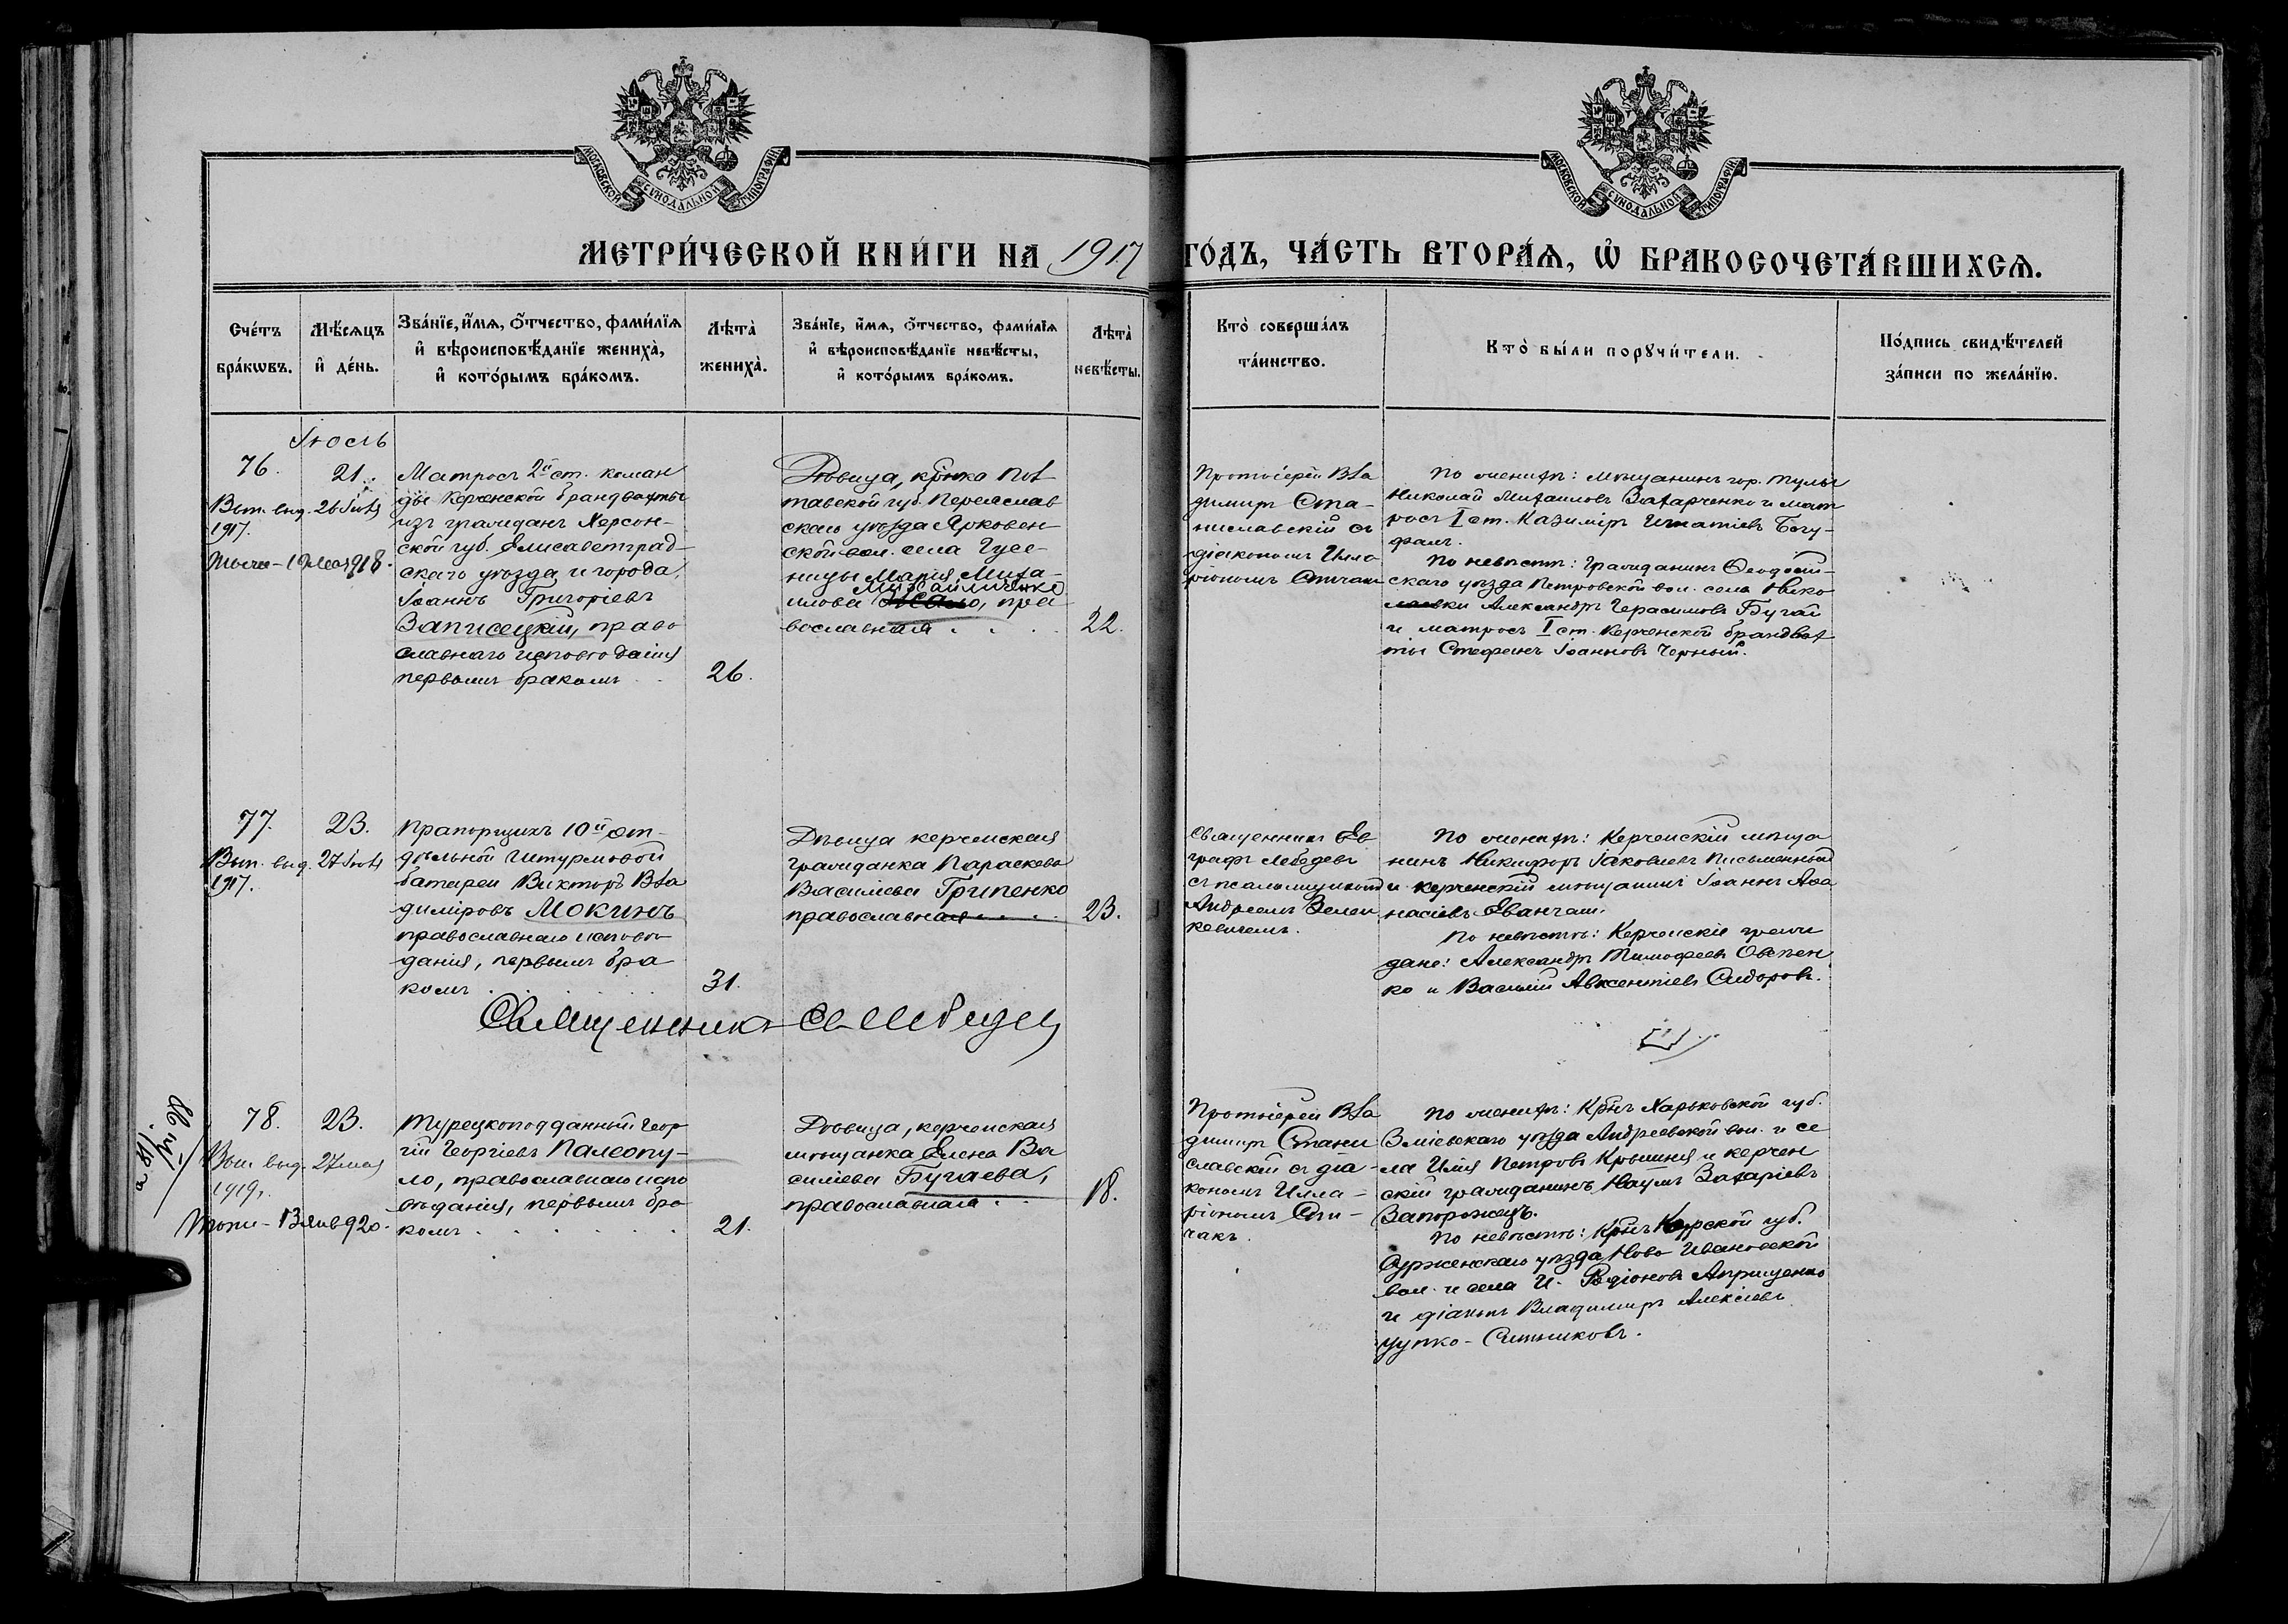 МОСКОВСКОЙ СѴНОДАЛЬНОЙ ТИПОГРАФІИ
МОСКОВСКОЙ СѴНОДАЛЬНОЙ ТИПОГРАФІИ
МЕТРИ́ЧЕСКОЙ КНИ́ГИ НА 1917 ГО́ДЪ, ЧА́СТЬ ВТОРА́Ѧ, Ѡ҆ БРАКОСОЧЕТА́ВШИХСѦ.
Сче́тъ бра́кѡвъ.
Мѣ́сѧцъ и҆ де́нь.
Зва́нїе, и҆́мѧ, ѻ҆́тчество, фами́лїѧ и҆ вѣроисповѣ́данїе жениха̀, и҆ кото́рымъ бра́комъ.
Лѣта̀ жениха̀.
Зва́нїе, и҆́мѧ, ѻ҆́тчество, фами́лїѧ и҆ вѣроисповѣ́данїе невѣ́сты, и҆ кото́рымъ бра́комъ.
Лѣта̀ невѣ́сты.
Кто̀ соверша́лъ та́инство.
Кто̀ бы́ли порꙋчи́тели.
По́дпись свидѣ́телей за́писи по жела́нїю.
Іюль
76.
21.
Вып. выд. 26 Іюля
1917.
1918.
Матросъ 2й ст. коман
ды Керченской брандвахты
изъ гражданъ Херсон-
ской губ. Елисаветград-
скаго уѣзда и города,
Іоаннъ Григоріевъ
Записецкій, право
славнаго исповѣданія
первымъ бракомъ
26.
Дѣвица, кр-нка Пол
тавской губ. Переяслав
скаго уѣзда Ярковен
ской вол. села Гусе-
ницы Марія Миха-
илова Михайличенко, пра
вославная
22.
Протоіерей Вла
димиръ Ста-
ниславскій съ
діакономъ Илла
ріономъ Спичак
По женихѣ: мѣщанинъ гор. Тулы
Николай Михаиловъ Захарченко и мат
росъ I ст. Казиміръ Игнатіевъ Богу-
фалъ.
По невѣстѣ: гражданинъ Ѳеодосій-
скаго уѣзда Петровской вол. села Нико
лаевки Александръ Герасимовъ Бугай
и матросъ I ст. Керченской брандвах
ты Стефанъ Іоанновъ Черный.
77.
23.
Вып. выд. 27 Іюля
1917.
Прапорщикъ 10й от-
дѣльной штурмовой
батареи Викторъ Вла
диміровъ Мокинъ
православнаго исповѣ
данія, первымъ бра
комъ
31.
Дѣвица керченская
гражданка Параскева
Василіева Грипенко
православная
23.
Священникъ Ев
графъ Лебедевъ
съ псаломщикомъ
Андреемъ Зелен
кевичемъ.
По женихѣ: Керченскій мѣща
нинъ Никифоръ Іаковлевъ Письменный
и керченскій мѣщанинъ Іоаннъ Аѳа
насіевъ
По невѣстѣ: Керченскіе граж
дане: Александръ Тимофеевъ Овсіен
ко и Василій Авксентіевъ Сидоровъ.
Священникъ
78.
23.
Вып. выд. 27 мая
1919.
13 янв 920.
Турецкоподданный Геор
гій Георгіевъ Палеопу-
ло, православнаго испо
вѣданія, первымъ бра
комъ
21.
Дѣвица, керченская
мѣщанка Елена Ва
силіева Бугаева,
православная
18.
Протоіерей Вла
димиръ Стани
славскій съ діа
кономъ Илла-
ріономъ Спи-
чакъ.
По женихѣ: Кр-нъ Харьковской губ.
Зміевскаго уѣзда Андреевской вол. и се
ла Илія Петровъ и керчен
скій гражданинъ Наумъ Захаріевъ
Запорожецъ.
По невѣстѣ: Кр-нъ Курской губ.
уѣзда Ново Ивановской
вол. и села И. Родіоновъ
и діаконъ Владимиръ Алексіевъ
Цупко-Ситниковъ.